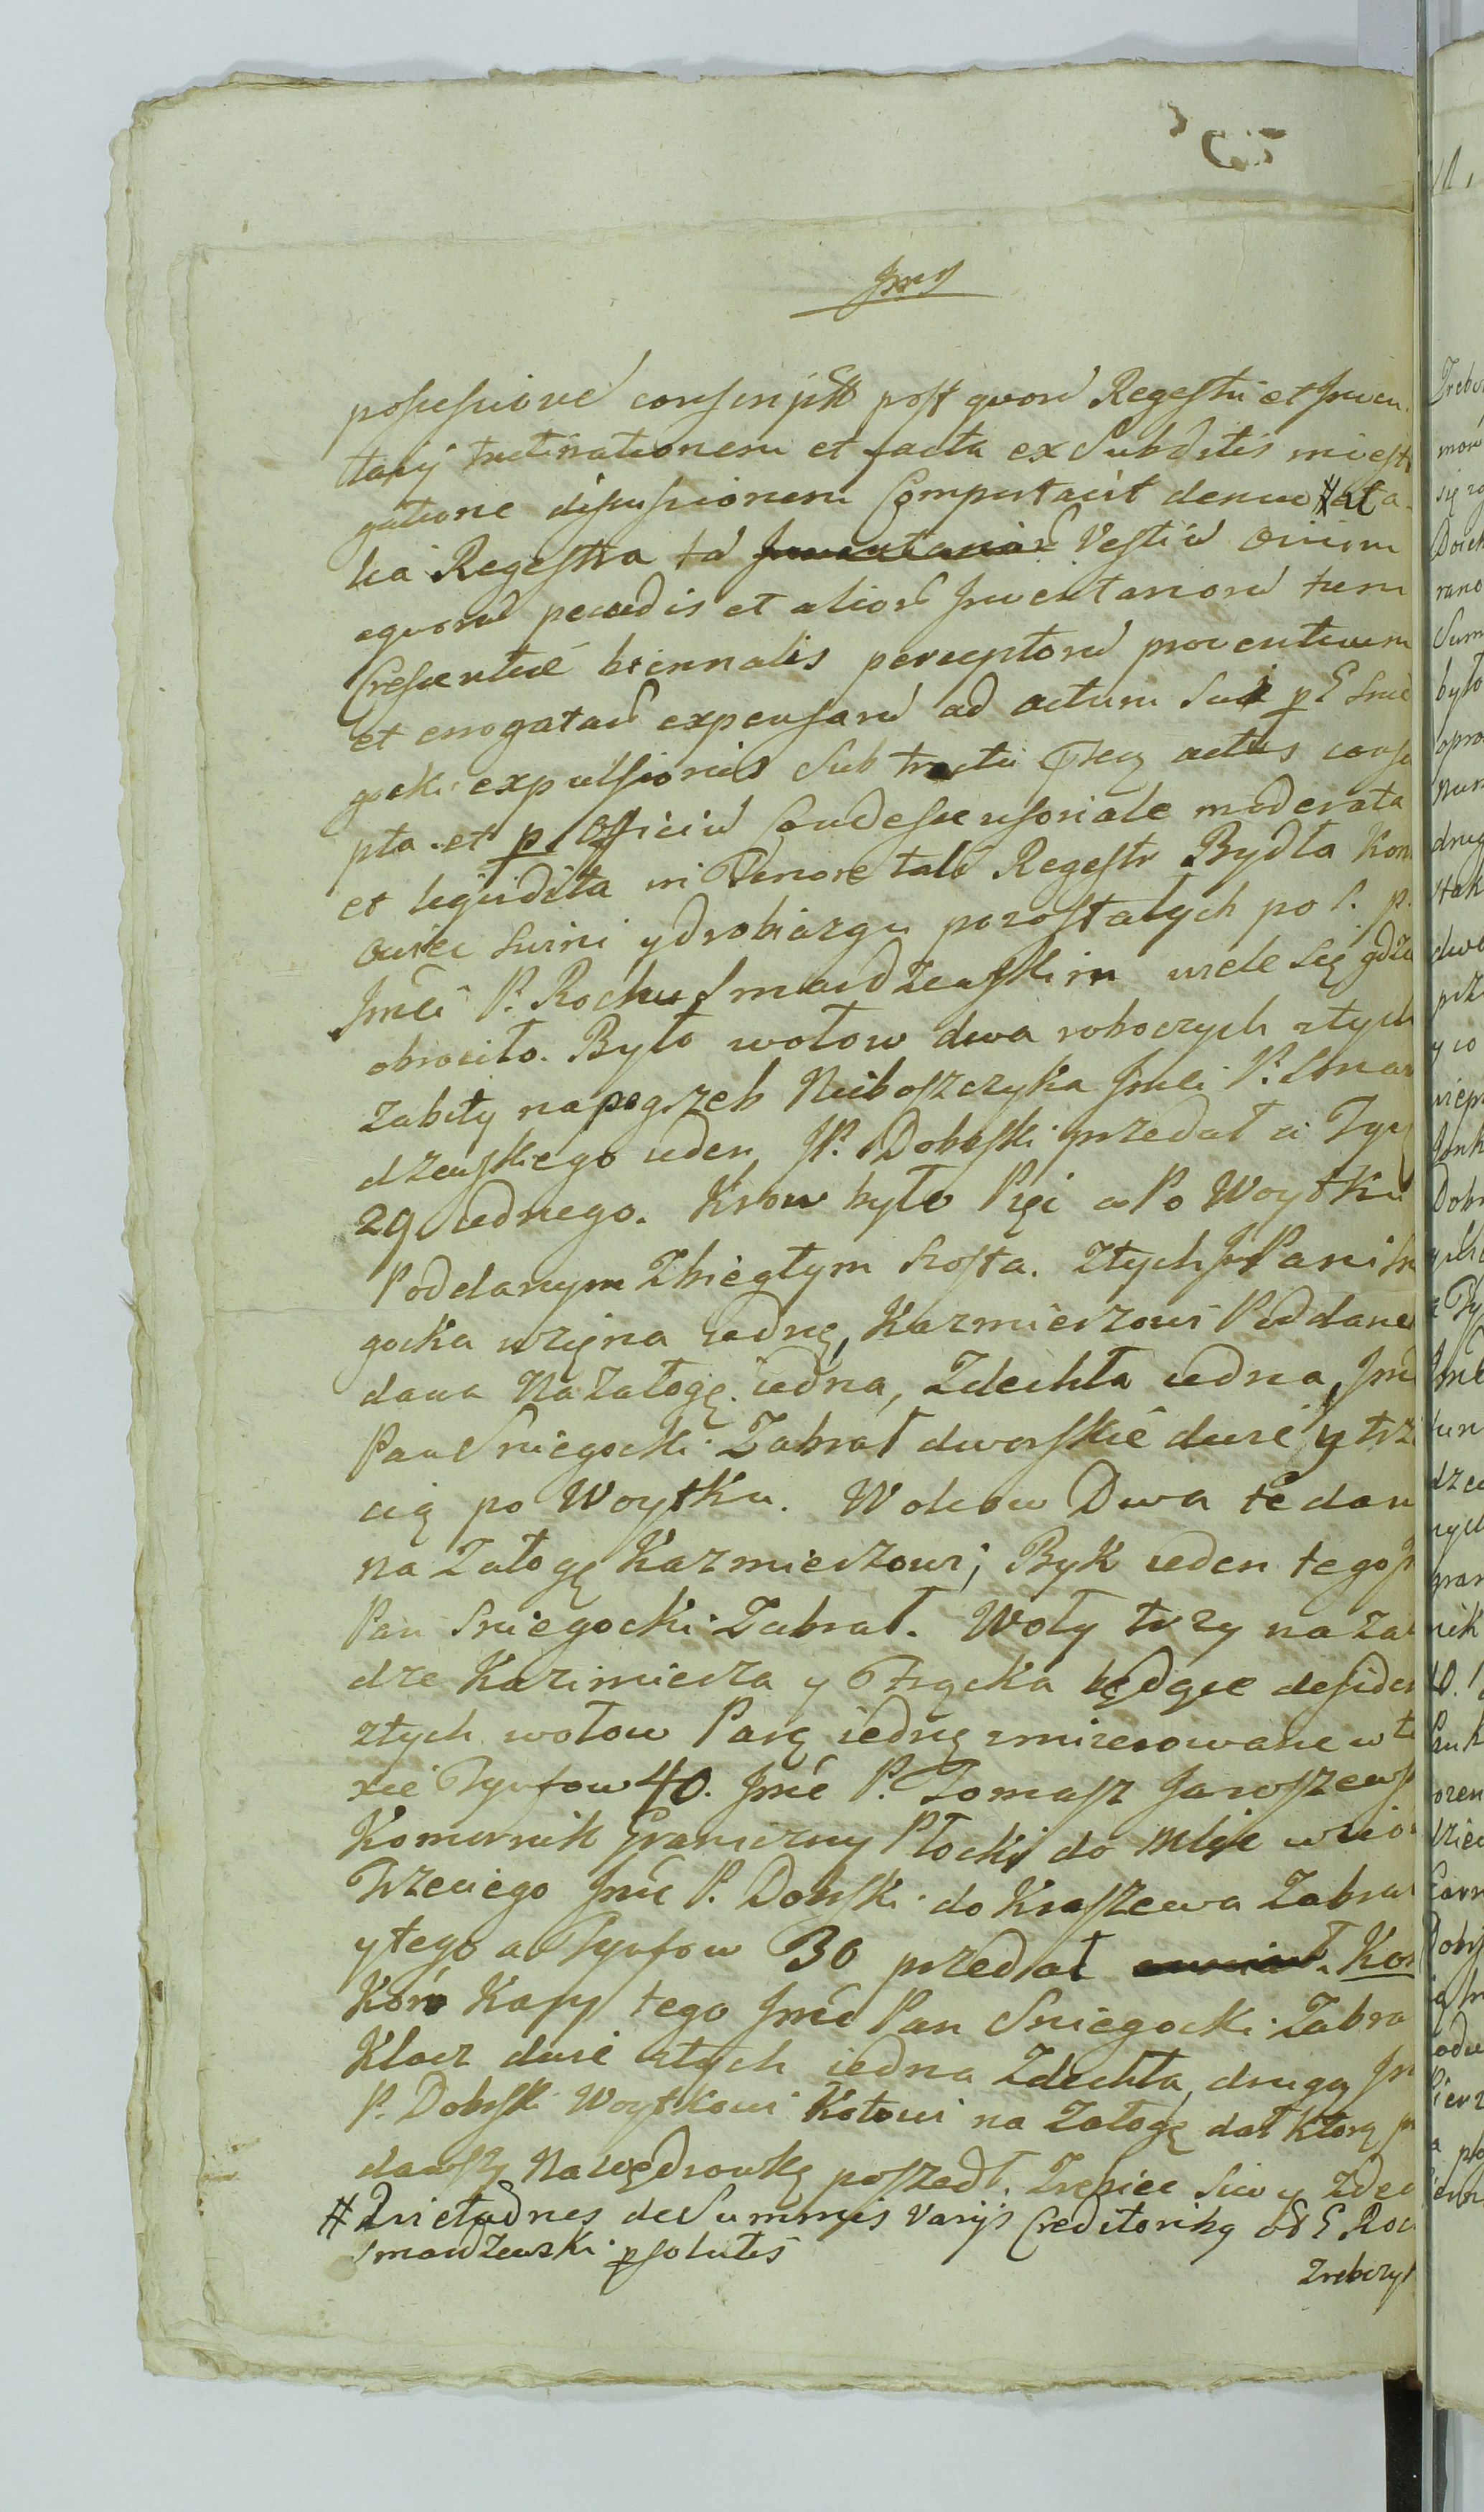 possessioné conscripti post quorū Regestri et Inven
tarij trutinationem et facta ex Subditis investi
gatione discussionem Computavit denuo # et a
lia Regestra
equorū pecudis et aliorū Inventariorū tum
Crescentiae biennalis perceptorū proventuum
et erogatarū expensarū ad actum Suae p G Snie
gocki expulsionis Sub tractu Pntis actus conscri
pta et p Officiū Condescensoriale moderata
et liquidata in Tenore tali Regestr Bydła Kon
owiec swini y drobiazgu pozostałych po ś. p.
Jmći P. Rochu Smardzewskim wiele się gdzie
obrociło. Było wołow dwa roboczych ztych
zabity na pogrzeb Nieboszczyka Jmći P. Smar
dzewskiego ieden, JP. Dobrski przedał za Tynf
29 iednego. Krow było Pięć a Po Woytku
Poddanym Zbiegłym Szosta. Ztych JPani Śnie
gocka wzięna iednę, Kazmierzowi Poddane
dana Na Załogę iedna, Zdechła iedna, Jmć
Pan Sniegocki Zabrał dworskie dwie y trze
cią po Woytku. Wolcow Dwa te dan
na Załogę Kazmierzowi; Byk ieden tego J
Pan Sniegocki Zabrał. Woły trzy na Za
dze Kazimierza y Frącka będące
ztych wołow Parę iednę zmizerowane w
nie Tynfow 40. Jmć P. Tomasz Jaroszews
Komornik Graniczny Płocki do Mlic wzioł
Trzeciego Jmć P. Dobrski do Kraszewa Zabrał
y tego a Tynfow 30 przedał Kon
Koń Kary tego Jmć Pan Sniegocki Zabra
Klacz dwie ztych iedna Zdechła, drugą Jm
P. Dobrski Woytkowi Kotowi na Załogę dał ktorą
dawszy Na wędrowkę poszedł. Zrebiec siwy Zdec
# Quietaones de Summis Varijs Creditoribq ol G Roc
Smardzewski psolutis
Zrebczy